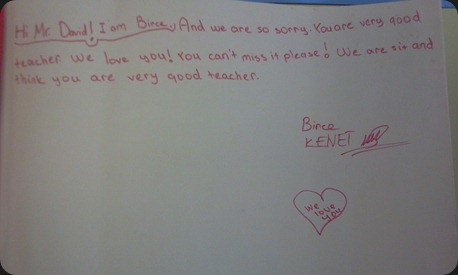 Hi Mr. David! I am Birce, And we are so sorry. You are very good
teacher. We love you! You can't miss it please! We are sit and
think you are very good teacher.
Birce
KENET
we
love
you